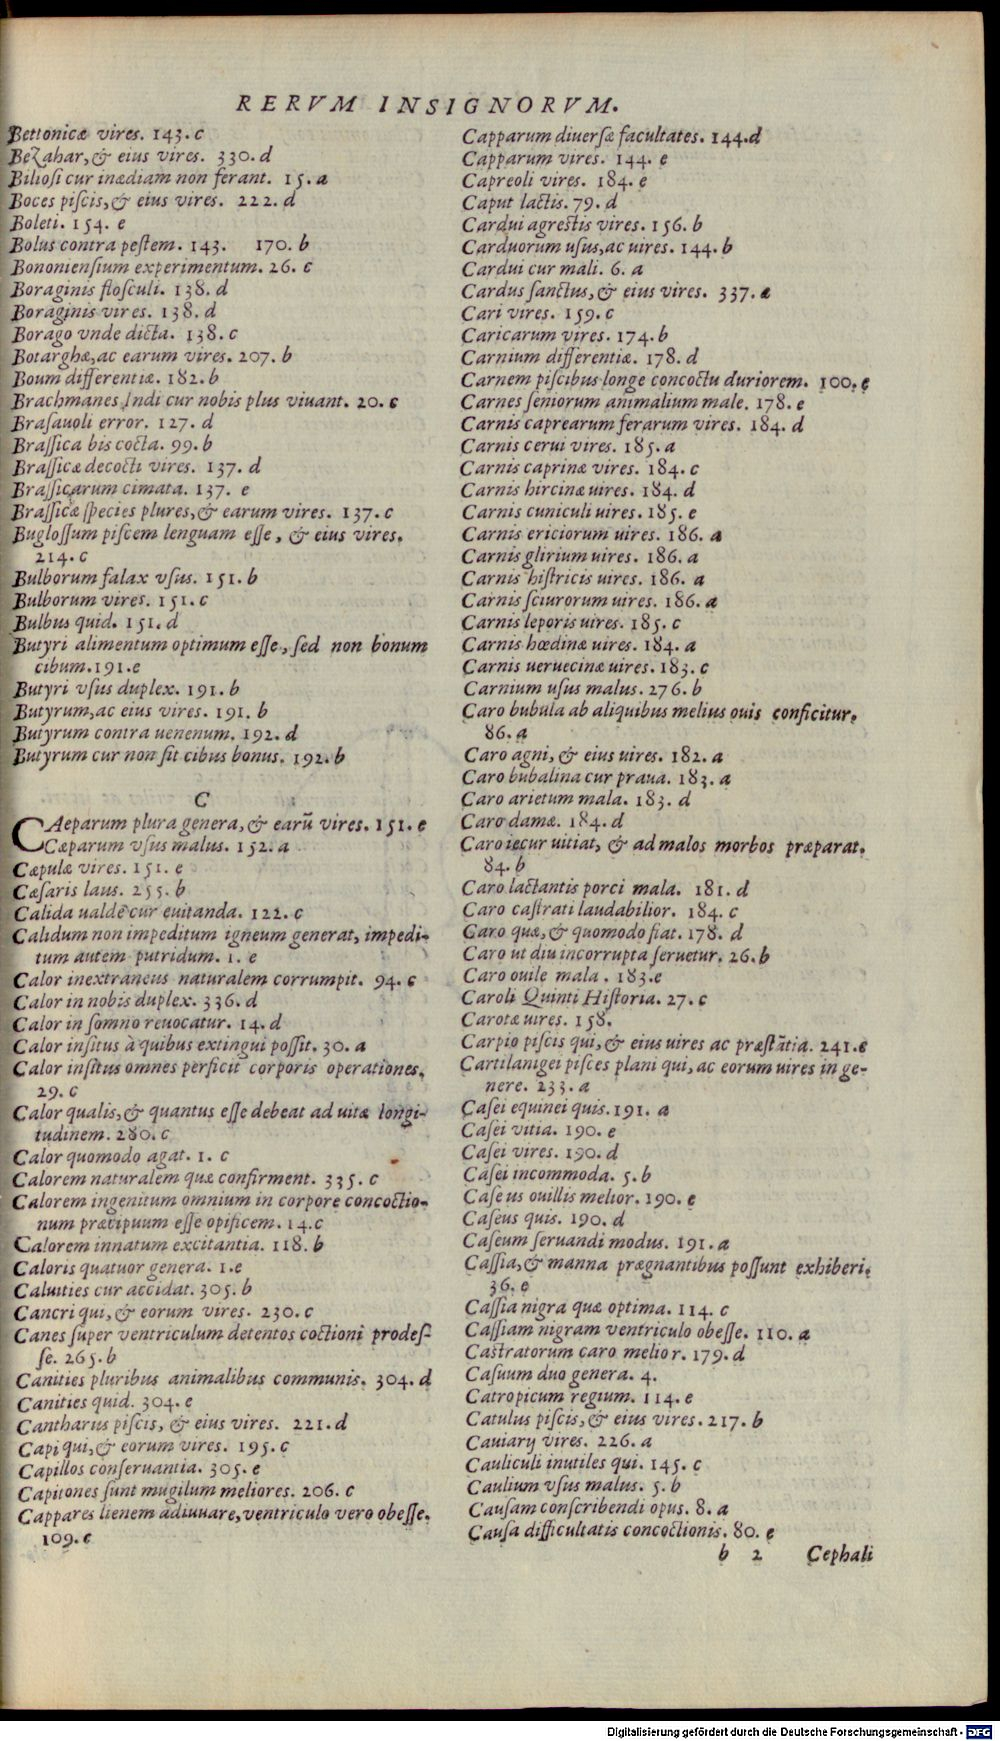 RERVM INSIGNORVM.
Bettonicæ vires. 143. c
Bezahar, & eius vires. 330. d
Biliosi cur inædiam non ferant. 15. a
Boces piſcis, & eius vires. 222. d
Boleti. 154. e
Bolus contra peſtem. 143. 170. b
Bononienſium experimentum. 26. c
Boraginis floſculi. 138. d
Boraginis vires. 138. d
Borago vnde dicta. 138. c
Botarghæ, ac earum vires. 207. b
Boum differentiæ. 182. b
Brachmanes Indi cur nobis plus viuant. 20. c
Braſauoli error. 127. d
Braſſica bis cocta. 99. b
Braſſicæ decocti vires. 137. d
Braſſicarum cimata. 137. e
Braſſicæ ſpecies plures, & earum vires. 137. c
Bugloſſum piſcem lenguam eſſe, & eius vires.
214. c
Bulborum falax vſus. 151. b
Bulborum vires. 151. c
Bulbus quid. 151. d
Butyri alimentum optimum eſſe, ſed non bonum
cibum. 191. e
Butyri vſus duplex. 191. b
Butyrum, ac eius vires. 191. b
Butyrum contra uenenum. 192. d
Butyrum cur non ſit cibus bonus. 192. b
C
CAeparum plura genera, & earū vires. 151. e
Cæparum vſus malus. 152. a
Cæpulæ vires. 151. e
Cæſaris laus. 255. b
Calida ualde cur euitanda. 122. c
Calidum non impeditum igneum generat, impedi-
tum autem putridum. 1. e
Calor inextraneus naturalem corrumpit. 94. c
Calor in nobis duplex. 336. d
Calor in ſomno reuocatur. 14. d
Calor inſitus à quibus extingui poſſit. 30. a
Calor inſitus omnes perficit corporis operationes.
29. c
Calor qualis, & quantus eſſe debeat ad uitæ longi-
tudinem. 280. c
Calor quomodo agat. 1. c
Calorem naturalem quæ confirment. 335. c
Calorem ingenitum omnium in corpore concoctio-
num præcipuum eſſe opificem. 14. c
Calorem innatum excitantia. 118. b
Caloris quatuor genera. 1. e
Caluities cur accidat. 305. b
Cancri qui, & eorum vires. 230. c
Canes ſuper ventriculum detentos coctioni prodeſ-
ſe. 265. b
Canities pluribus animalibus communis. 304. d
Canities quid. 304. e
Cantharus piſcis, & eius vires. 221. d
Capi qui, & eorum vires. 195. c
Capillos conſeruantia. 305. e
Capitones ſunt mugilum meliores. 206. c
Cappares lienem adiuuare, ventriculo vero obeſſe.
109. c
Capparum diuerſæ facultates. 144. d
Capparum vires. 144. e
Capreoli vires. 184. e
Caput lactis. 79. d
Cardui agreſtis vires. 156. b
Carduorum uſus, ac uires. 144. b
Cardui cur mali. 6. a
Cardus ſanctus, & eius vires. 337. a
Cari vires. 159. c
Caricarum vires. 174. b
Carnium differentiæ. 178. d
Carnem piſcibus longe concoctu duriorem. 100. e
Carnes ſeniorum animalium male. 178. e
Carnis caprearum ferarum vires. 184. d
Carnis cerui vires. 185. a
Carnis caprinæ vires. 184. c
Carnis hircinæ uires. 184. d
Carnis cuniculi uires. 185. e
Carnis ericiorum uires. 186. a
Carnis glirium uires. 186. a
Carnis hiſtricis uires. 186. a
Carnis ſciurorum uires. 186. a
Carnis leporis uires. 185. c
Carnis hœdinæ uires. 184. a
Carnis ueruecinæ uires. 183. c
Carnium uſus malus. 276. b
Caro bubula ab aliquibus melius ouis conficitur.
86. a
Caro agni, & eius uires. 182. a
Caro bubalina cur praua. 183. a
Caro arietum mala. 183. d
Caro damæ. 184. d
Caro iecur uitiat, & ad malos morbos præparat.
84. b
Caro lactantis porci mala. 181. d
Caro caſtrati laudabilior. 184. c
Caro quæ, & quomodo fiat. 178. d
Caro ut diu incorrupta ſeruetur. 26. b
Caro ouile mala. 183. e
Caroli Quinti Hiſtoria. 27. c
Carotæ uires. 158.
Carpio piſcis qui, & eius uires ac præſtātia. 241. e
Cartilanigei piſces plani qui, ac eorum uires in ge-
nere. 233. a
Caſei equinei quis. 191. a
Caſei vitia. 190. e
Caſei vires. 190. d
Caſei incommoda. 5. b
Caſeus ouillis melior. 190. e
Caſeus quis. 190. d
Caſeum ſeruandi modus. 191. a
Caſſia, & manna prægnantibus poſſunt exhiberi.
36. e
Caſſia nigra quæ optima. 114. c
Caſſiam nigram ventriculo obeſſe. 110. a
Caſtratorum caro melior. 179. d
Caſuum duo genera. 4.
Catropicum regium. 114. e
Catulus piſcis, & eius vires. 217. b
Cauiarij vires. 226. a
Cauliculi inutiles qui. 145. c
Caulium vſus malus. 5. b
Cauſam conſcribendi opus. 8. a
Cauſa difficultatis concoctionis. 80. e
b 2 Cephali
Digitalisierung gefördert durch die Deutsche Forschungsgemeinschaft - DFG